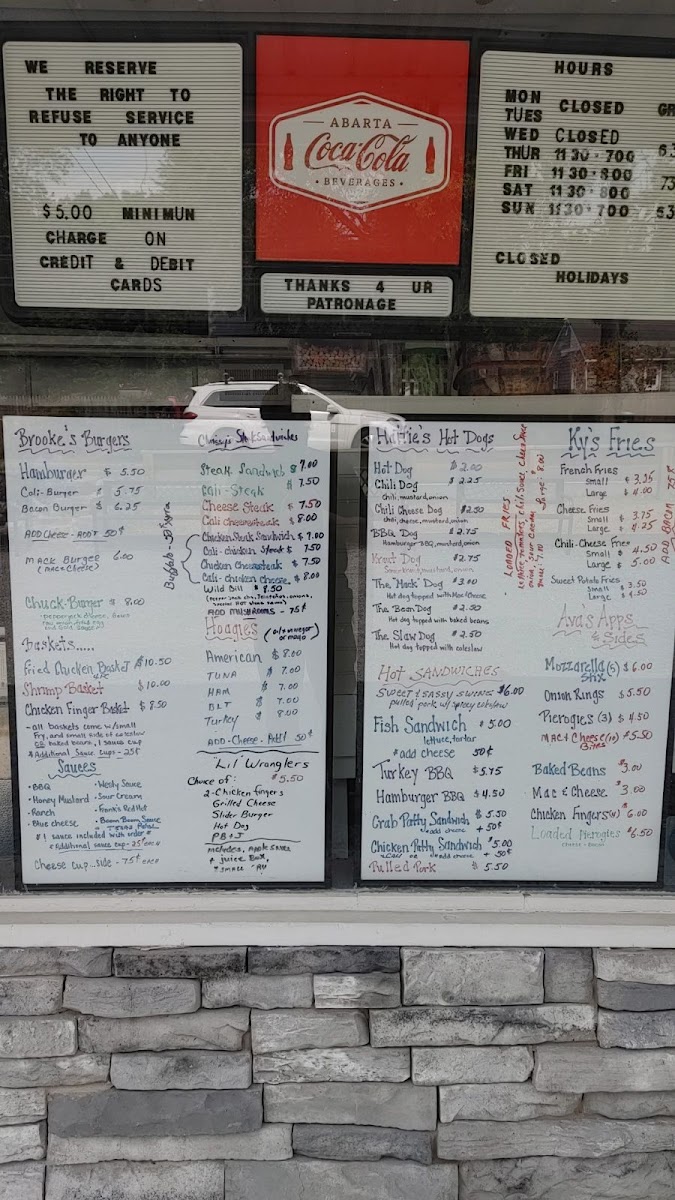 WE RESERVE
THE RIGHT TO
REFUSE SERVICE
TO ANYONE
$5.00 MINIMUN
CHARGE ON
CREDIT & DEBIT
CARDS
ABARTA
Coca-Cola
BEVERAGES
THANKS 4 UR
PATRONAGE
HOURS
MON CLOSED
TUES
WED CLOSED
THUR 11 30 - 7 00
FRI 11 30 - 8 00
SAT 11 30 - 8 00
SUN 11 30 - 7 00
CLOSED
HOLIDAYS
Brooke's Burgers
Hamburger $ 5.50
Cali-Burger $ 5.75
Bacon Burger $ 6.25
ADD Cheese - ADD'T 50¢
MACK Burger 6.00
(mac & cheese)
Chuck-Burger $ 8.00
Baskets.....
Fried Chicken Basket $10.50
Shrimp Basket $10.00
Chicken Finger Basket $ 8.50
- all baskets come w/small
Fry, and small side of coleslaw
OR baked beans, 1 sauce cup
* Additional Sauce Cups - 25¢
Sauces
• BBQ
• Honey Mustard
• Ranch
• Blue cheese
• Westy Sauce
• Sour Cream
• Frank's Red Hot
• Boom Boom Sauce
• Texas Petal
# 1 sauce included with order #
* Additional sauce cup - 25¢ each
Cheese cup...side - 75¢ each
Steak Sandwich $ 7.00
Cali-Steak $ 7.50
Cheese Steak $ 7.50
Cali Cheesesteak $ 8.00
Buffalo -
Chicken Steak Sandwich $ 7.00
Cali-chicken Steak $ 7.50
Chicken Cheesesteak $ 7.50
Cali-chicken cheese. $ 8.00
Wild Bill $ 8.50
ADD MUSHROOMS - 75¢
Hoagies (oil & vinegar or mayo)
American $ 8.00
TUNA $ 7.00
HAM $ 7.00
BLT $ 7.00
Turkey $ 8.00
ADD - Cheese - Add'l 50¢
"Lil' Wranglers
Choice of: $5.50
2-Chicken fingers
Grilled Cheese
Slider Burger
Hot Dog
PB & J
includes, Apple sauce
+ juice Box,
* small fry
Hattie's Hot Dogs
Hot Dog $ 2.00
Chili Dog $ 2.25
chili, mustard, onion
Chili Cheese Dog $2.50
chili, cheese, mustard, onion
BBQ Dog $ 2.75
Hamburger BBQ, mustard, onion
Kraut Dog $2.75
Sauerkraut, mustard, onion
The "Mack" Dog $3.00
Hot dog topped with Mac & Cheese
The Bean Dog $2.50
Hot dog topped with baked beans
The Slaw Dog $2.50
Hot dog topped with coleslaw
Hot SANDWICHES
SWEET & SASSY SWINE $6.00
pulled pork w/ spicy coleslaw
Fish Sandwich $ 5.00
lettuce, tartar
* add cheese 50¢
Turkey BBQ $5.75
Hamburger BBQ $4.50
Crab Patty Sandwich $ 5.50
* add cheese + 50¢
Chicken Patty Sandwich $5.00
* add cheese + 50¢
Pulled Pork $ 5.50
LOADED FRIES
Small: 7.00
Large: 8.00
Ky's Fries
French Fries
Small $ 3.25
Large $ 4.00
Cheese Fries
Small $ 3.75
Large $ 4.25
Chili-Cheese Fries
Small $ 4.50
Large $ 5.00
Sweet Potato Fries
Small $ 3.50
Large $ 4.50
ADD BACON 75¢
Ava's Apps
& Sides
Mozzarella (5) $ 6.00
Stix
Onion Rings $ 5.50
Pierogies (3) $ 4.50
MAC & Cheese (10) $5.50
Bites
Baked Beans $3.00
Mac & Cheese $ 3.00
Chicken Fingers (4) $ 6.00
Loaded Pierogies $6.50
cheese - bacon